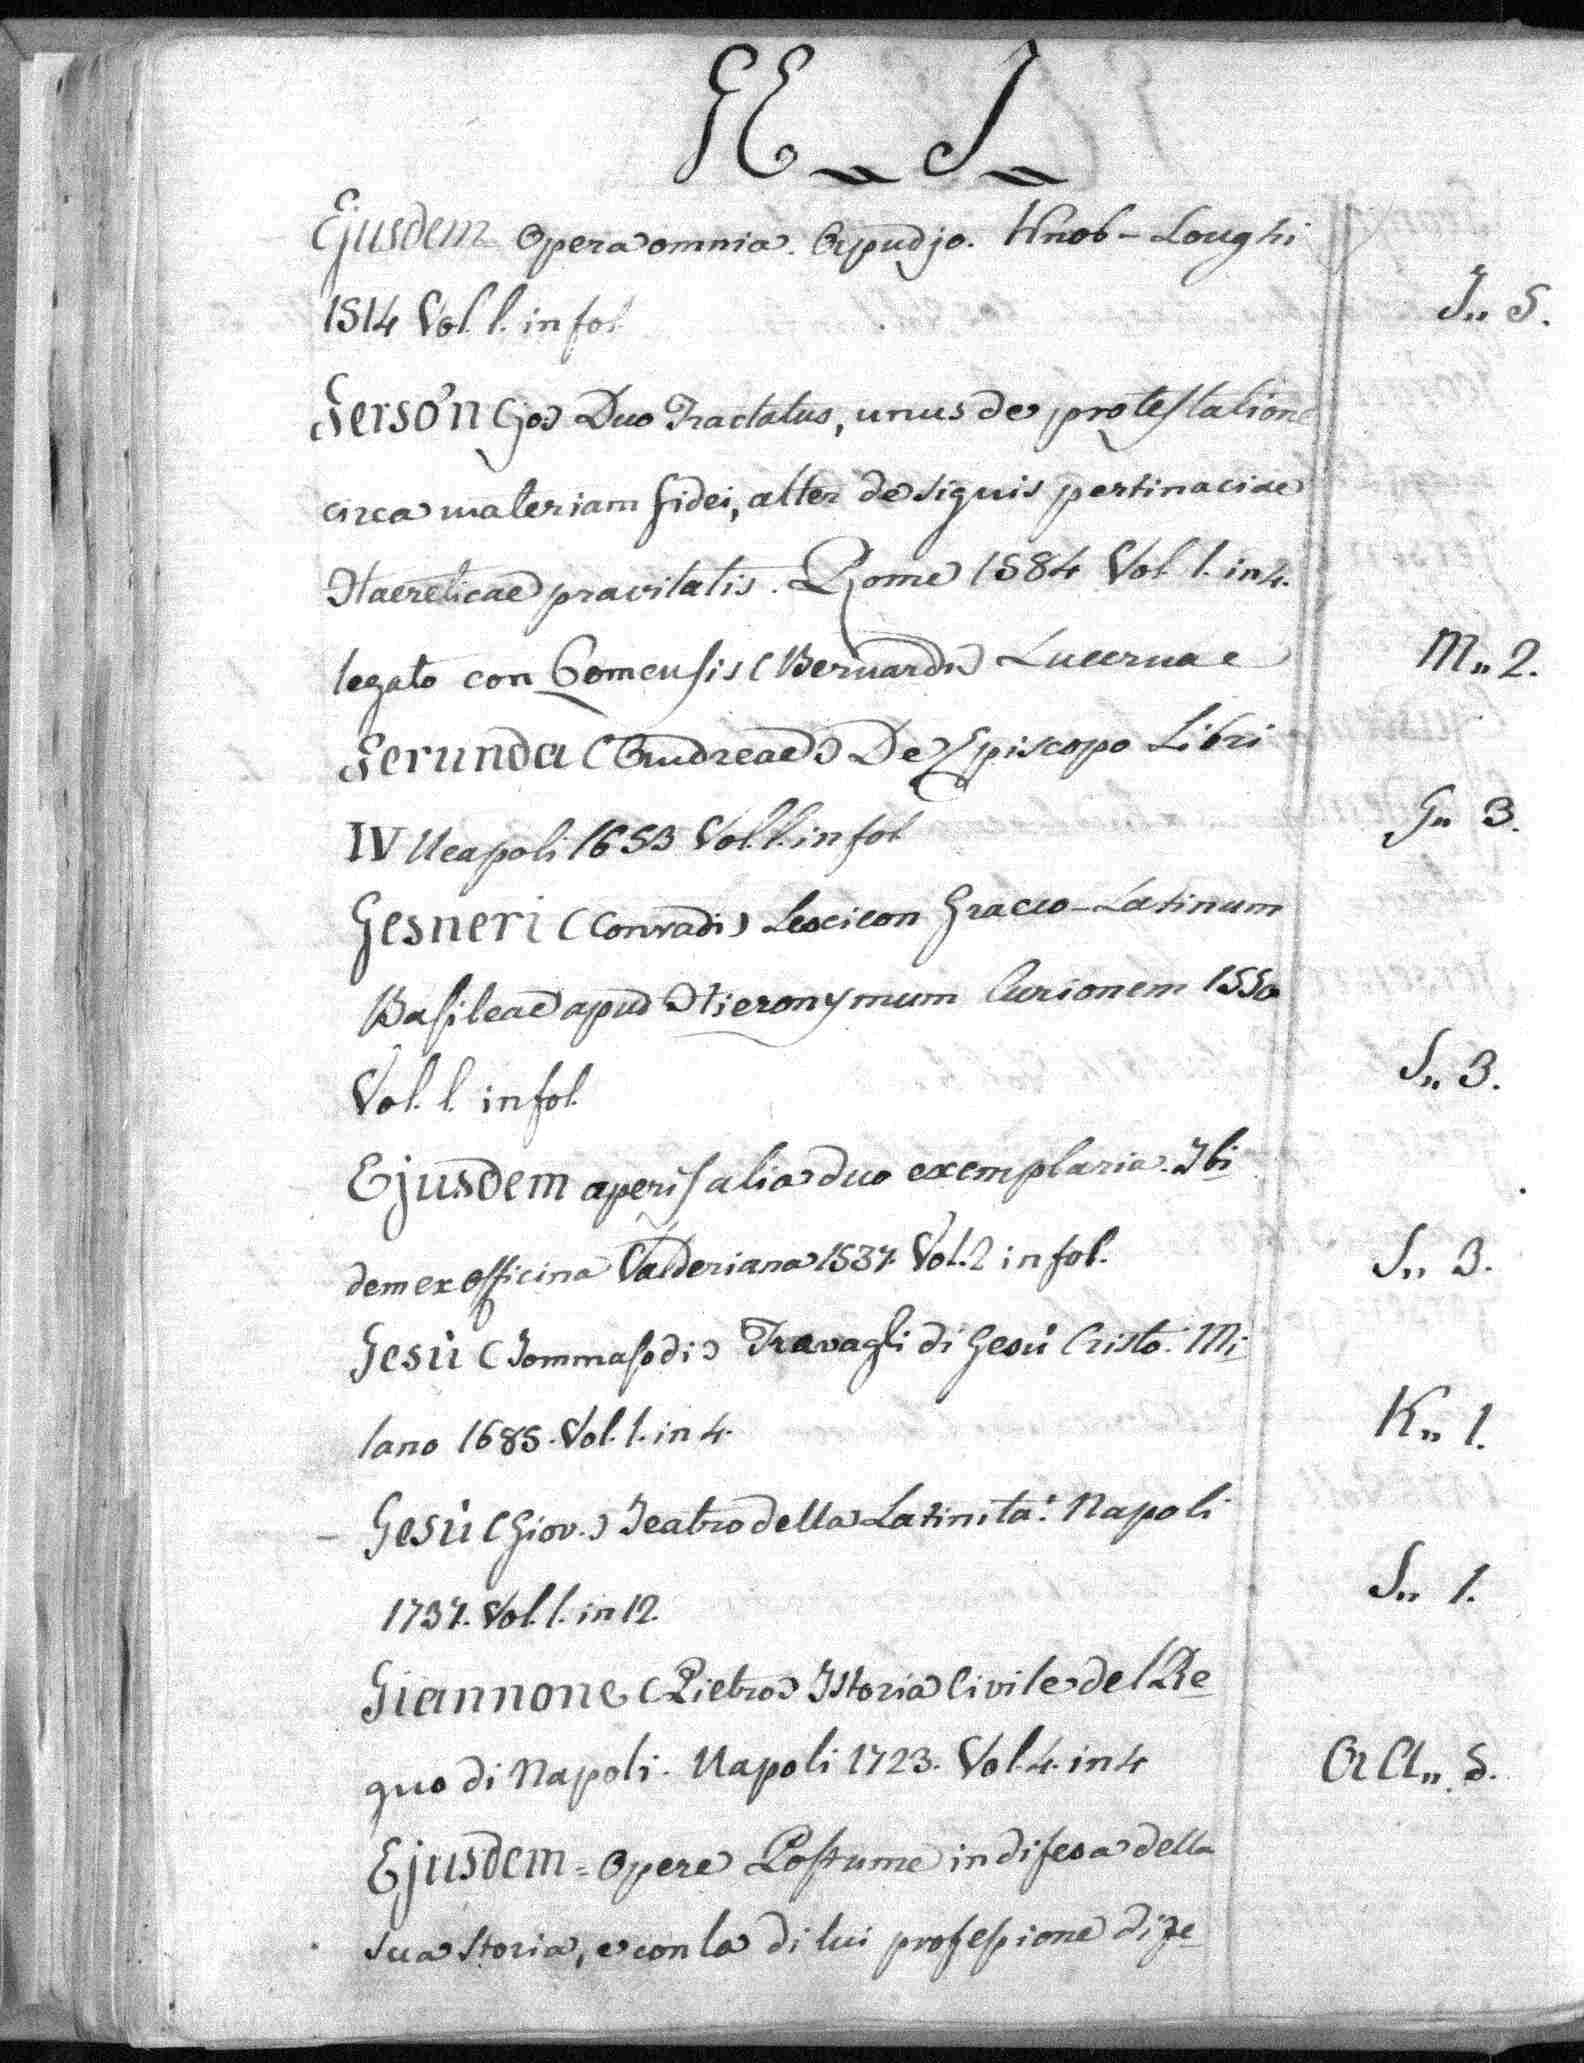 GE „ I „
Ejusdem Opera omnia. Apud jo. Knob-Loughi
1514 Vol. 1. in fol. I„ 5.
Gersòn (jo) Duo Tractatus, unus de protestatione
circa materiam fidei, alter de signis pertinaciae
Haereticae pravitatis. Rome 1584 Vol. 1. in 4.
legato con Comensis (Bernardi) Lucernae M„ 2.
Gerunda (Andreae) De Episcopo Libri
IV Neapoli 1653 Vol. 1. in fol. G„ 3.
Gesneri (Conradi) Lexicon Graeco-Latinum
Basileae apud Hieronymum Curionem 1550
Vol. 1. in fol. S„ 3.
Ejusdem operis alia duo exemplaria. Ibi
dem ex officina Valderiana 1537. Vol. 2 in fol. S„ 3.
Gesù (Tommaso di) Travagli di Gesù Cristo. Mi
lano 1685. Vol. 1. in 4. K„ 1.
Gesù (Giov.) Teatro della Latinità. Napoli
1737. Vol. 1. in 12. S„ 1.
Giannone (Pietro) Istoria Civile del Re
gno di Napoli. Napoli 1723. Vol. 4. in 4 AA„ 5.
Ejusdem = Opere Postume in difesa della
sua storia, e con la di lui professione di fe